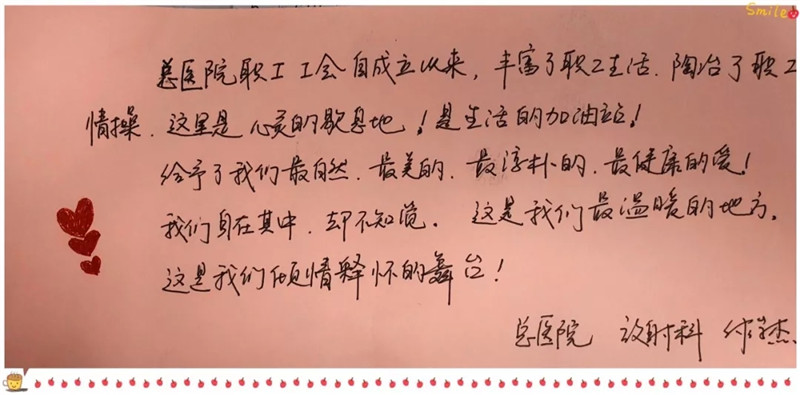 Smile
总医院职工工会自成立以来,丰富了职工生活.陶冶了职工
情操.这里是心灵的歇息地!是生活的加油站!
给予了我们最自然.最美的.最淳朴的.最健康的爱!
我们身在其中.却不知觉。这是我们最温暖的地方。
这是我们倾情释怀的舞台!
总医院 放射科